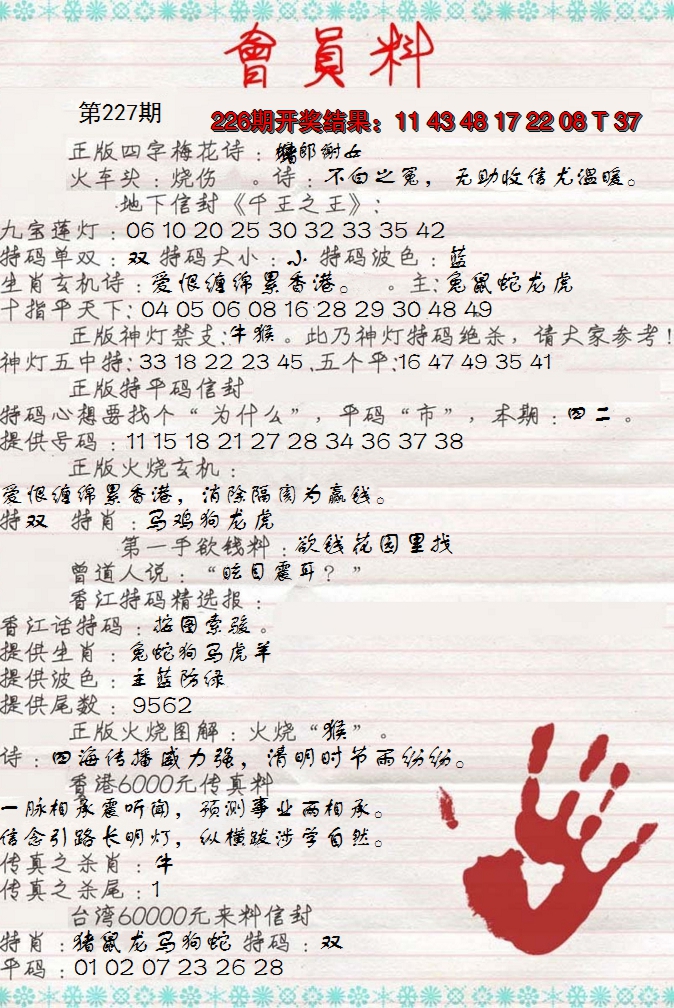 會員料
第227期
226期开奖结果：11 43 48 17 22 08 T 37
正版四字梅花诗：郎谢女
火车头：烧伤 。诗：不白之冤，无助收信尤温暖。
地下信封《千王之王》：
九宝莲灯：06 10 20 25 30 32 33 35 42
特码单双：双 特码大小：小 特码波色：蓝
生肖玄机诗：爱恨缠绵累香港。 。主：兔鼠蛇龙虎
十指平天下：04 05 06 08 16 28 29 30 48 49
正版神灯禁支：牛猴。此乃神灯特码绝杀，请大家参考！
神灯五中特：33 18 22 23 45 .五个平：16 47 49 35 41
正版特平码信封
特码心想要找个“为什么”，平码“市”，本期：四二。
提供号码：11 15 18 21 27 28 34 36 37 38
正版火烧玄机：
爱恨缠绵累香港，消除隔阂为赢钱。
特双 特肖：马鸡狗龙虎
第一手欲钱料：欲钱花园里找
曾道人说：“眩目震耳？”
香江特码精选报：
香江话特码：按图索骏。
提供生肖：兔蛇狗马虎羊
提供波色：主蓝防绿
提供尾数：9562
正版火烧图解：火烧“猴”。
诗：四海传播威力强，清明时节雨纷纷。
香港6000元传真料
一脉相承震听闻，预测事业两相承。
信念引路长明灯，纵横跋涉学自然。
传真之杀肖：牛
传真之杀尾：1
台湾60000元来料信封
特肖：猪鼠龙马狗蛇 特码：双
平码：01 02 07 23 26 28